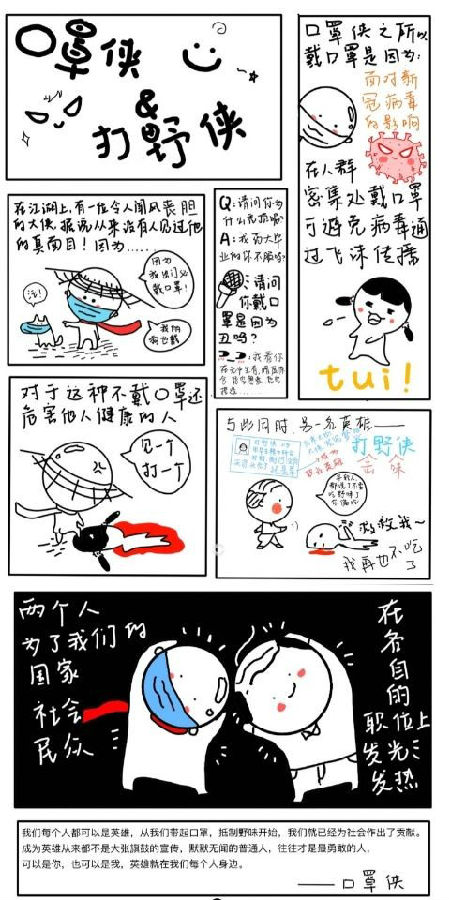 口罩侠
&
打野侠
口罩侠之所以
戴口罩是因为:
面对新
冠病毒
的影响
在人群
密集处戴口罩
可避免病毒通
过飞沫传播
tui!
在江湖上,有一位令人闻风丧胆
的大侠,据说从来没有人见过他
的真面目!因为……
因为
我他们必
戴口罩!
汪!
我的
狗也戴
Q:请问你为
A:我
:请问
你戴口
罩是因为
丑吗?
:我看你
对于这种不戴口罩还
危害他人健康的人
见一个
打一个
与此同时,另一名英雄——
打野侠
救救我~
我再也不吃
了
两个人
为了我们的
国家
社会
民众
在各自的
职位上
发光
发热
我们每个人都可以是英雄,从我们带起口罩,抵制野味开始,我们就已经为社会作出了贡献。
成为英雄从来都不是大张旗鼓的宣传,默默无闻的普通人,往往才是最勇敢的人.
可以是你,也可以是我,英雄就在我们每个人身边。
——口罩侠